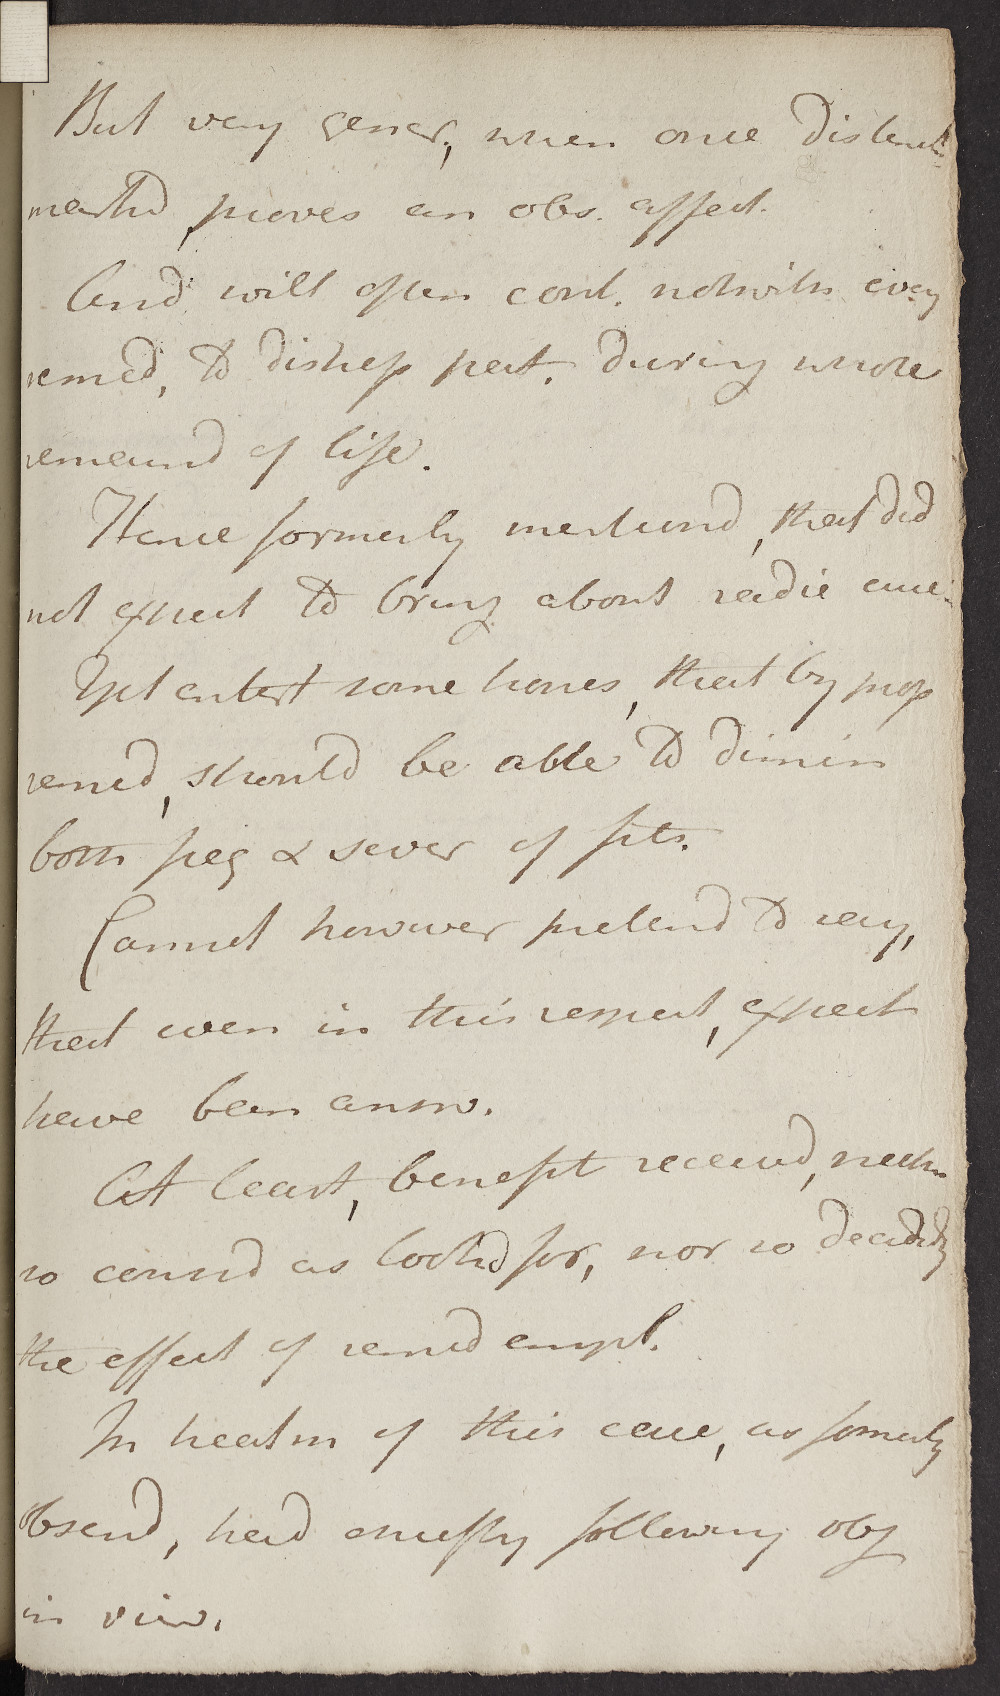 But very gener, when once distinctly
markd, proves an obs. affect.
And will often cont. notwith every
remed, to distress pat. during whole
remaind of life.
Hence formerly mentiond, that did
not expect to bring about radic cure.
Yet entert some hopes, that by prop
remed, should be able to dimin
both freq & sever of fits.
Cannot however pretend to say,
that even in this respect, expect
have been answ.
At least, benefit receivd, neith
so consid as lookd for, nor so decidedly
the effect of remed empl.
In treatm of this case, as formerly
obsend, had chiefly following obj
in view.